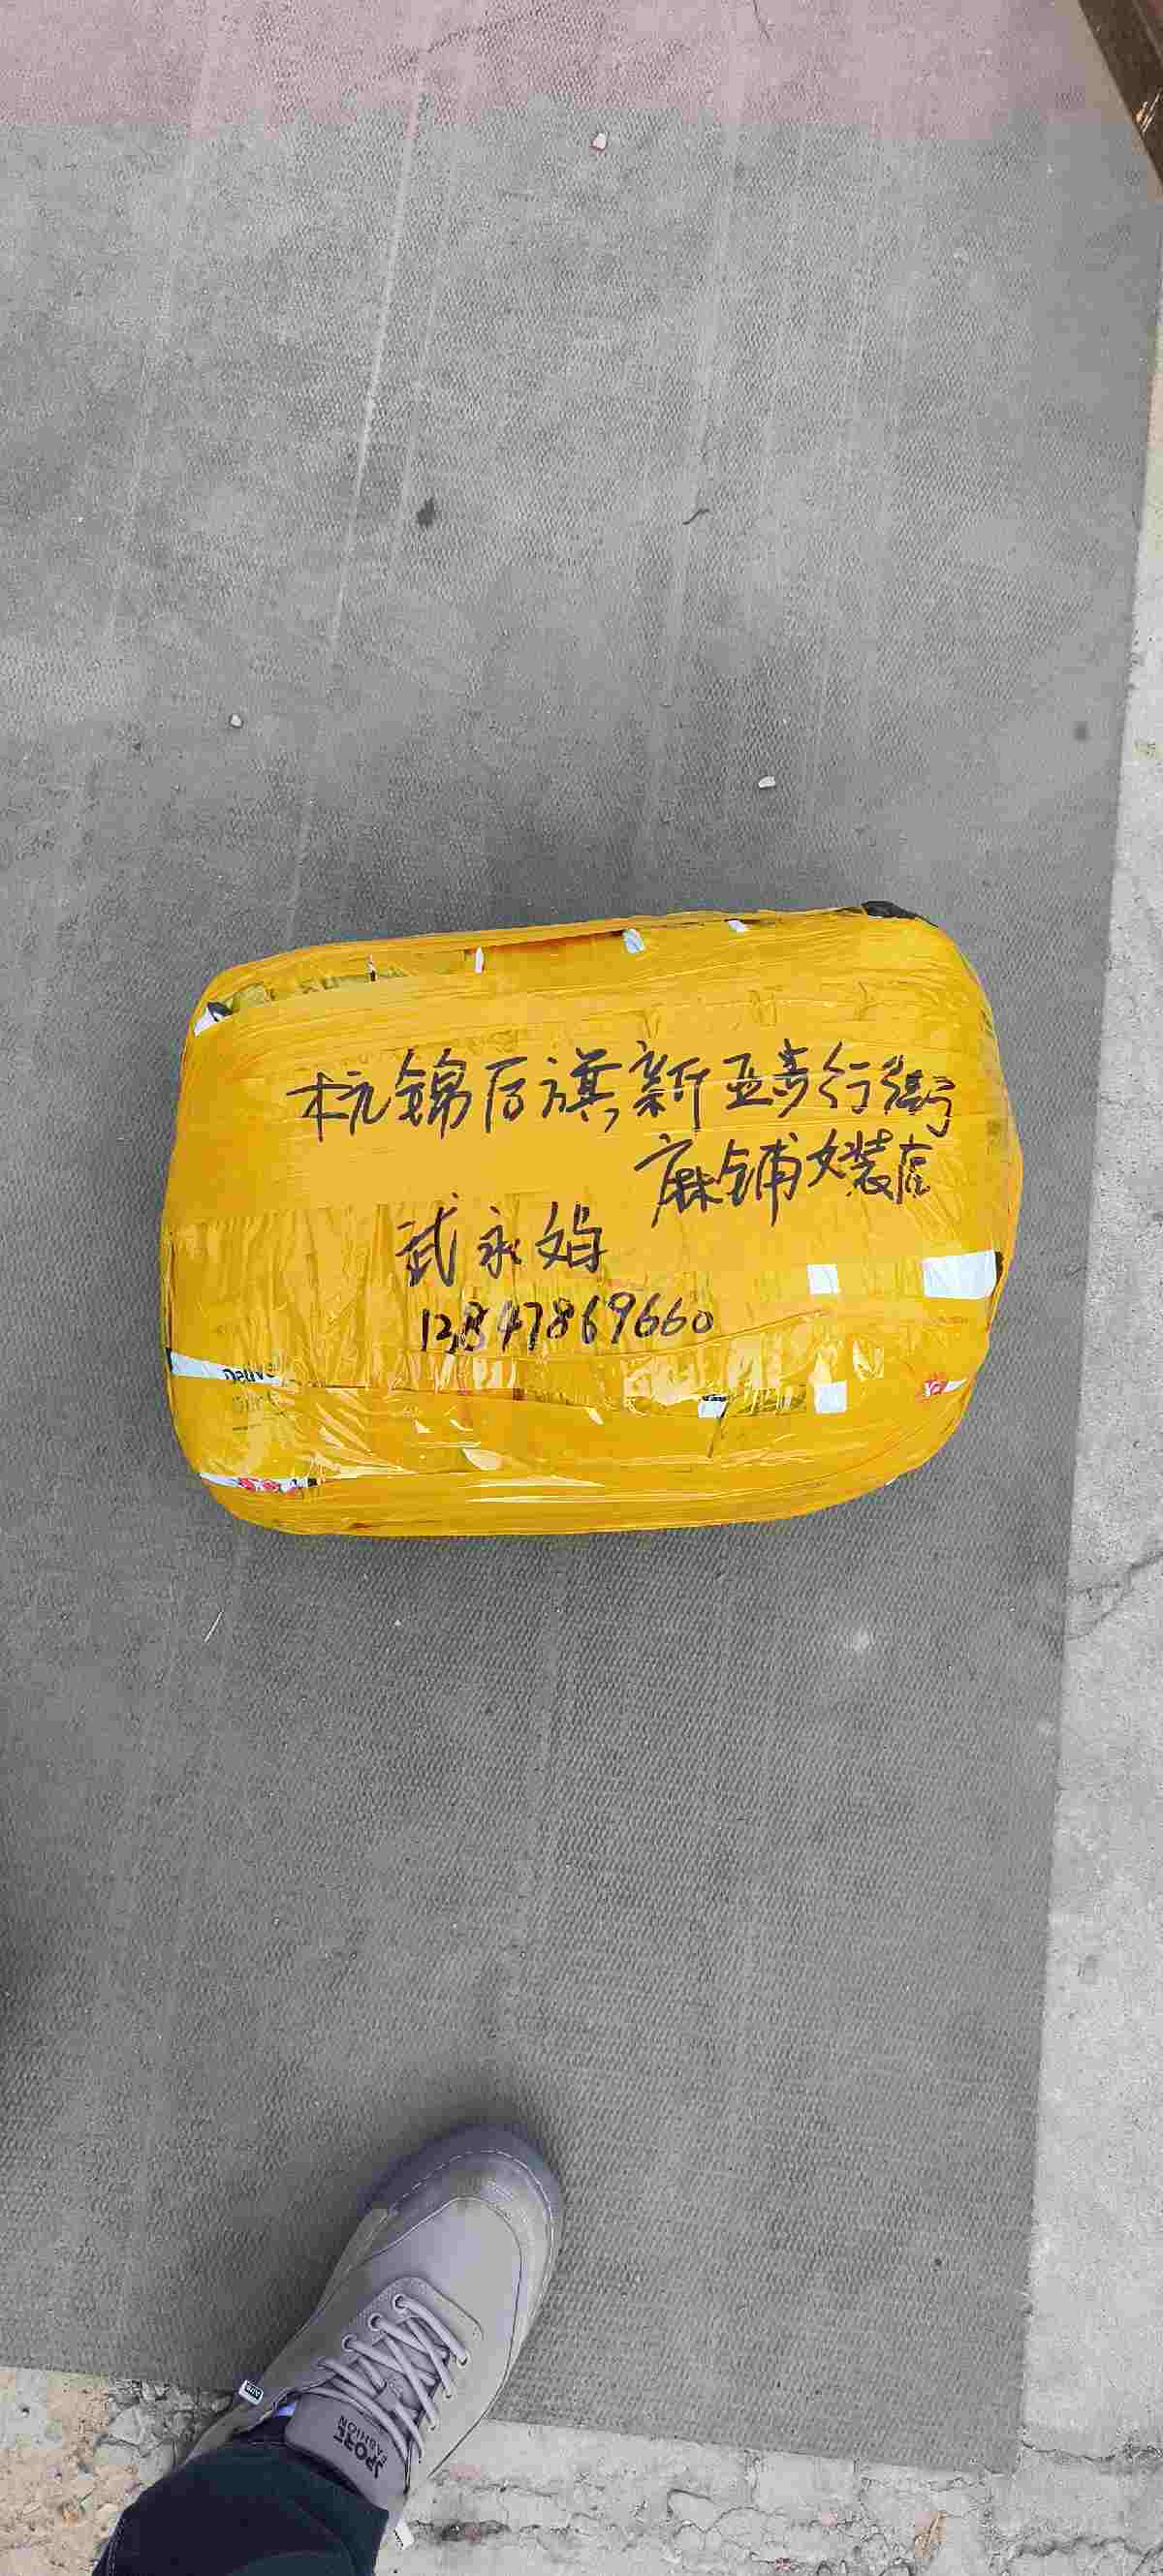 杭锦后旗新亚步行街
麻铺女装店
武永
13847869660
SPORE
FASHION